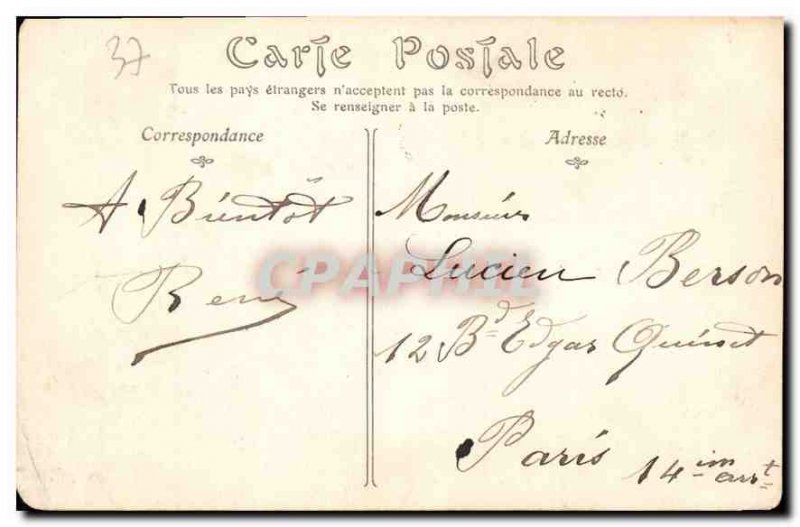 37
Carte Postale
Tous les pays étrangers n'acceptent pas la correspondance au recto.
Se renseigner à la poste.
Correspondance
Adresse
A Bientôt
René
Monsieur
Lucien Berson
12 Bd Edgar Quinet
Paris 14im arrt
CPAPHIL